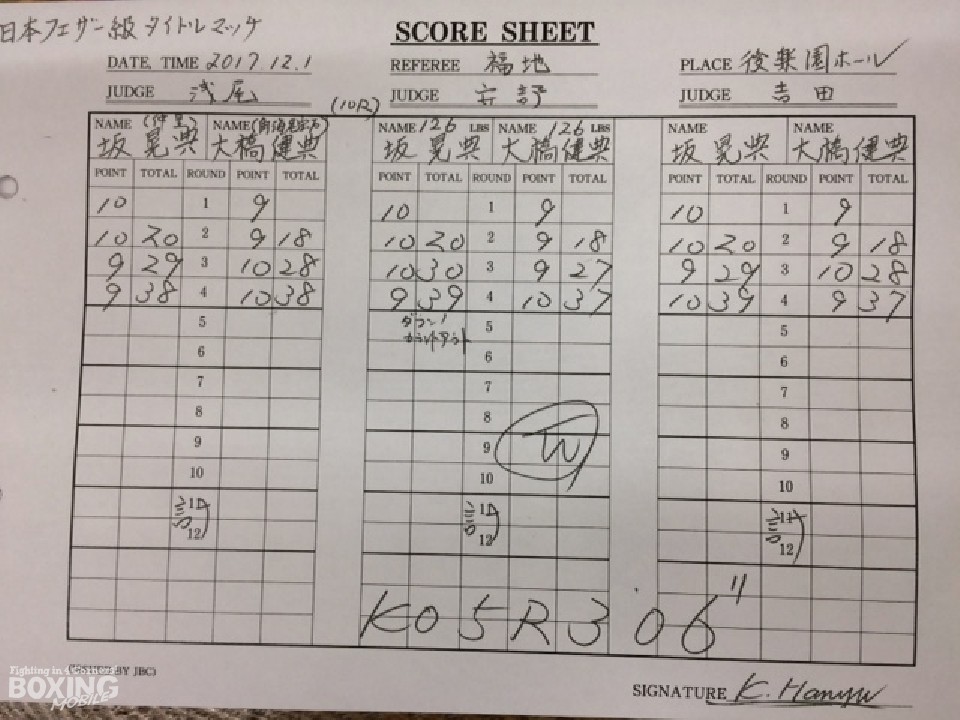 日本フェザー級タイトルマッチ
SCORE SHEET
DATE, TIME 2017.12.1 REFEREE 福地 PLACE 後楽園ホール
JUDGE 浅尾 (10R) JUDGE JUDGE 吉田
NAME (仲里) NAME NAME 126 LBS NAME 126 LBS NAME NAME
坂 晃典 大橋健典 坂 晃典 大橋健典 坂 晃典 大橋健典
POINT TOTAL ROUND POINT TOTAL POINT TOTAL ROUND POINT TOTAL POINT TOTAL ROUND POINT TOTAL
10 1 9 10 1 9 10 1 9
10 20 2 9 18 10 20 2 9 18 10 20 2 9 18
9 29 3 10 28 10 30 3 9 27 9 29 3 10 28
9 38 4 10 38 9 39 4 10 37 10 39 4 9 37
5 ダウン1 5 5
6 カウントアウト 6 6
7 7 7
8 8 8
9 9 W 9
10 10 10
計 11 計 11 計 11
12 12 12
KO 5R 3'06"
BY JBC)
SIGNATURE K. Hanyu
Fighting in 4 Corners!
BOXING
MOBILE